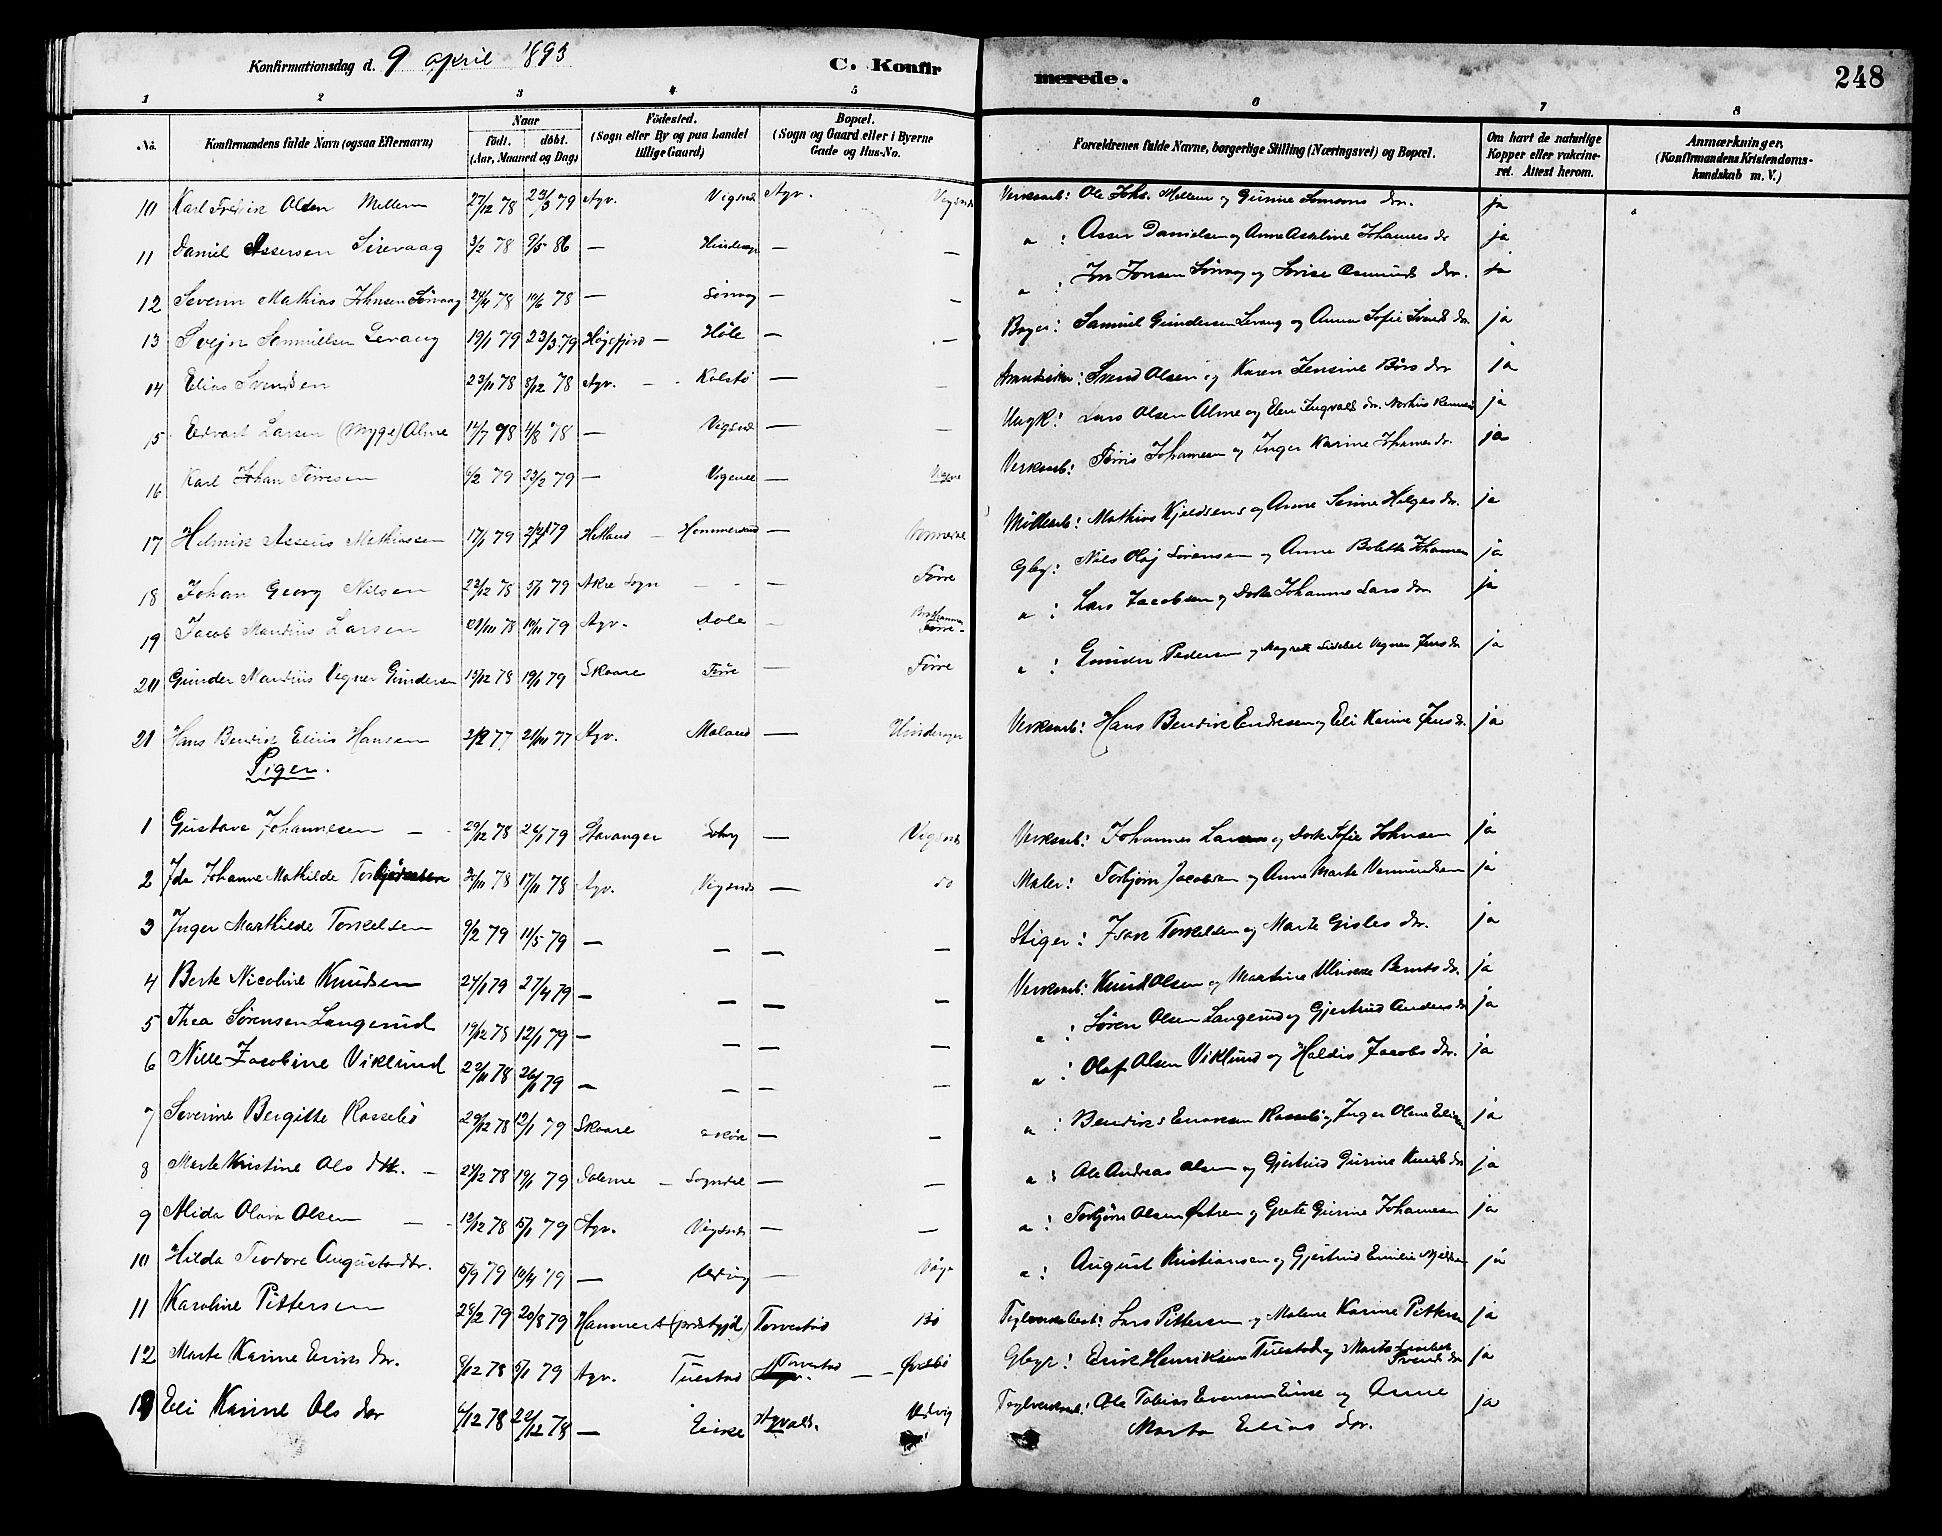 Konfirmationsdag d. 9 april 1893 C. Konfirmerede. 248
1 2 3 4 5 6 7 8
No. Konfirmandens fulde Navn (ogsaa Efternavn) Naar født. døbt. (Aar, Maaned og Dag) Fødested. (Sogn eller By og paa Landet tillige Gaard) Bopæl. (Sogn og Gaard eller i Byerne Gade og Hus-No. Forældrenes fulde Navne, borgerlige Stilling (Næringsvei) og Bopæl. Om havt de naturlige Kopper eller vaccineret. Attest herom. Anmærkninger. (Konfirmandens Kristendomskundskab m. V.)
10 Karl Fredrik Olsen Mellem 27/12 78 23/3 79 Agv. Vigsnes Agv. Vigsnes Verksarb: Ole Johs. Mellem og Gurine Simons dr. ja
11 Daniel Assersen Sirevaag 3/2 78 9/5 86 — Hinderager — — " : Asser Danielsen og Anne Asseline Johannes dr ja
12 Severin Mathias Johnsen Sørvaag 24/4 78 10/6 78 — Sørvag — — " : Jon Jonsen Sørvag og Serine Osmunds dr. ja
13 Svejn Samuelsen Levang 19/1 79 23/3 79 Høgsfjord — Høle — — Samuel Gundersen Levang og Anna Sofie Svends dr ja
14 Elias Svendsen 23/11 78 8/12 78 Agv. — Kolstø — — Svend Olsen og Karen Jensine Børs dr ja
15 Edvart Larsen (Myge) Alme 14/7 78 4/8 78 — Vigsnes — — Lars Olsen Alme og Elen Ingvalds dr. ja
16 Karl Johan Tørresen 6/2 79 23/2 79 — Vigsnes — Vigsnes Verksarb: Tørris Johannesen og Inger Karine Johannes dr. ja
17 Helmik Assenis Mathiassen 17/1 79 79 Hetland — Hommersand — Mathias Kjeldsen og Anne Serine Helges dr. ja
18 Johan Georg Nilsen 23/12 78 5/1 79 Akre Sogn — — Førre Gbr: Nils Olaj Sørensen og Anne Bolette Johannes ja
19 Jacob Mandius Larsen 78 79 Agv. Aole — Førre " : Lars Jacobsen og Dorte Johanne Lars dr ja
20 Gunder Mandius Vegner Gundersen 15/12 78 19/1 79 Skaare Førre — Førre " : Gunder Pedersen og Magrete Sidsel Vegner Jens dr ja
21 Hans Bendik Elius Hansen 77 21/10 77 Agv. Moland — Hinderager Verksarb: Hans Bendik Endresen og Eli Karine Jens dr. ja
Piger.
1 Gustava Johannesen — 29/12 78 26/1 79 Stavanger — Vigsnes Verksarb: Johannes Larsen og Dorte Sofie Johnsen ja
2 Ida Johanne Mathilde Torbjørnsen 78 17/11 78 Agv. Vigsnes — do Maler: Torbjørn Jacobsen og Anne Marte Vermundsen ja
3 Inger Marthilde Torkelsen 9/2 79 11/5 79 — — — — Stiger: Isak Torkelsen og Marte Gisles dr. ja
4 Berte Nicoline Knudsen 24/1 79 27/4 79 — — — — Verksarb: Knud Olsen og Martine Ulrikke Bernts dr. ja
5 Thea Sørensen Langerud 19/12 78 12/1 79 — — — — " : Søren Olsen Langerud og Gjertrud Anders dr ja
6 Nille Jacobine Viklund 23/11 78 26/1 79 — — — — " : Olaf Olsen Viklund og Haldis Jacobs dr. ja
7 Severine Bergitte Rossebø 29/12 78 12/1 79 Skaare — — " : Bendik Enoksen Rossebø og Inger Oline Elias ja
8 Marte Kristine Ols dtr. — 24/12 78 19/1 79 Dalerne — Sogndal — — " : Ole Andreas Olsen og Gjertrud Gurine Knuds dr ja
9 Alida Olava Olsen — 12/12 78 5/1 79 Agv. Vigsnes — — " : Torbjørn Olsen Østrem og Grete Gurine Johannesen ja
10 Hilda Teodore Augustsdtr. 5/9 79 79 — — " : August Kristiansen og Gjertrud Emilie ja
11 Karoline Pittersen 28/2 79 20/8 79 Torvestad Bø Lars Pittersen og Malene Karine Petters ja
12 Marte Karine Eriks dr. 8/12 78 5/1 79 Agv. Tuestad Torvestad — Øvrebø Gbr: Erik Henriksen Tuestad og Marta Svends dr ja
13 Eli Karine Ols dtr 6/12 78 22/12 78 — Eike Agvalds. Vedvig Ole Tobias Evensen Eike og Anne Marta Elias dr. ja